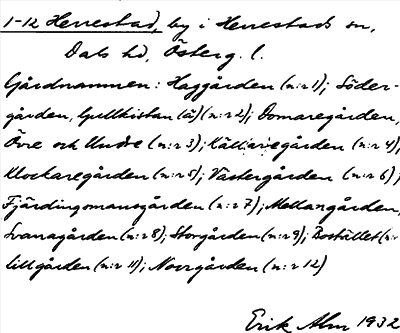 1-12 Herrestad, by i Herrestads sn,
Dals hd, Österg. l.
Gårdnamnen: Haggården (n:r 1); Söder-
gården, Gullkistan (n:r 2); Domaregården,
Övre och Undre (n:r 3); Källaregården (n:r 4),
Klockaregården (n:r 5); Västergården (n:r 6);
Fjärdingsmansgården (n:r 7); Mellangården,
Svanagården (n:r 8); Storgården (n:r 9); Bostället (n:r
Lillgården (n:r 11); Norrgården (n:r 12)
Erik Alm 1932